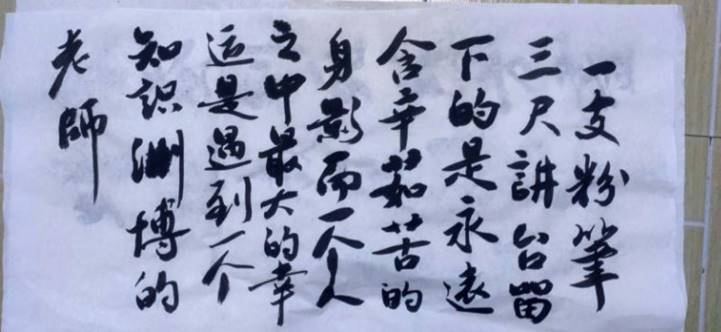 一支粉筆
三尺講台留
下的是永遠
含辛茹苦的
身影而一个人
之中最大的幸
运是遇到一个
知识渊博的
老師